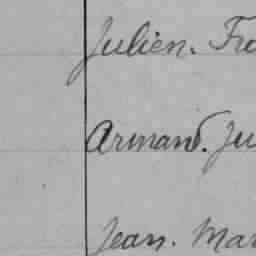 Julien. Fra
Armand. Ju
Jean. Mar